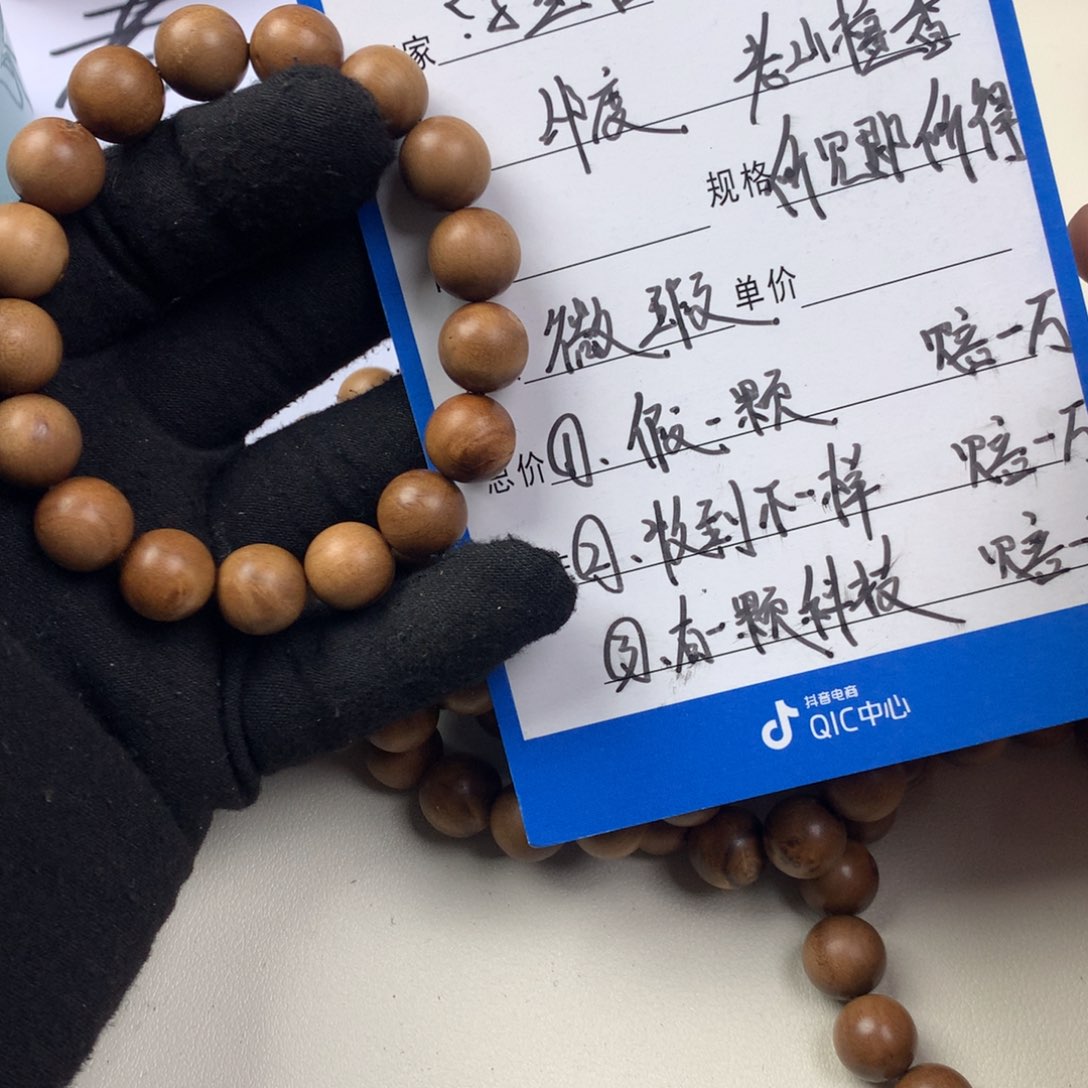 家:
印度 老山檀香
规格 所见即所得
微瑕 单价
赔一万
总价 ①.假一颗
②.收到不一样 赔一万
③.有一颗科技 赔一
抖音电商
QIC中心